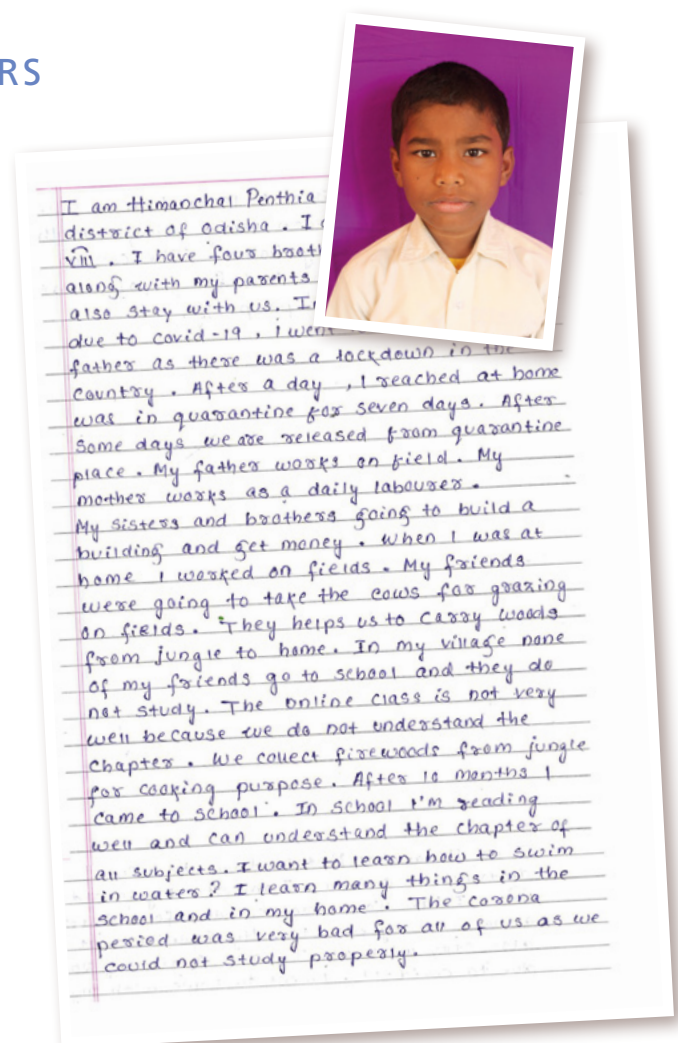 RS
I am Himanchal Penthia
district of Odisha. I
VIII. I have four
along with my parents
also stay with us.
due to covid-19, i went
father as there was a lockdown in the
country. After a day, I reached at home
was in quarantine for seven days. After
some days we are released from quarantine
place. My father works on field. My
mother works as a daily labourer.
My sisters and brothers going to build a
building and get money. When I was at
home I worked on fields. My friends
were going to take the cows for grazing
on fields. They helps us to carry woods
from jungle to home. In my village none
of my friends go to school and they do
not study. The online class is not very
well because we do not understand the
chapter. We collect firewoods from jungle
for cooking purpose. After 10 months I
came to school. In school I'm reading
well and can understand the chapter of
all subjects. I want to learn how to swim
in water? I learn many things in the
school and in my home. The corona
period was very bad for all of us as we
could not study properly.